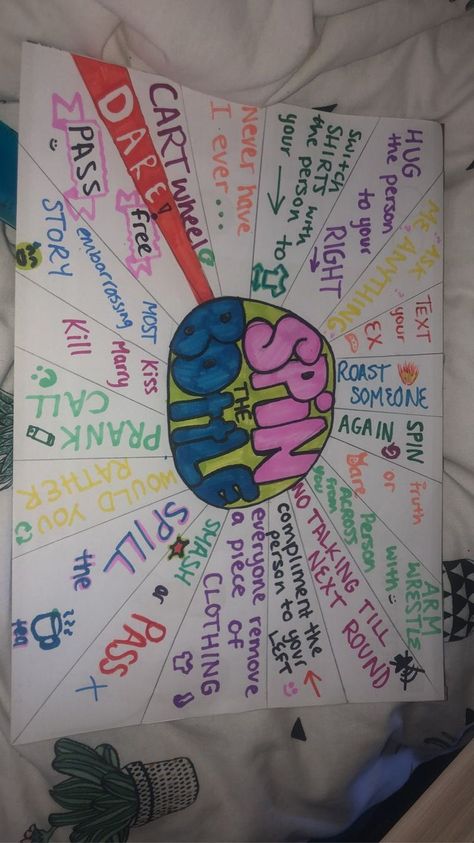 SPIN
THE
BOttLE
DARE!
CARTwheel
Never have
I ever...
SWitCH
SHIRTS with
the person to
your →
HUG
the person
to your
RIGHT
→
ASK
ME ANYTHING
TEXT
your
EX
ROAST
SOMEONE
SPIN
AGAIN
truth
or
Dare
ARM
WRESTLE
with
Person
ACROSS
from
you
NO TALKING TILL
NEXT ROUND
compliment the
person to your
LEFT
←
everyone remove
a piece of
CLOTHING
SMASH
or
PASS
SPILL
the
tea
WOULD YOU
RATHER
PRANK
CALL
Kiss
Marry
Kill
MOST
embarrassing
STORY
free
PASS